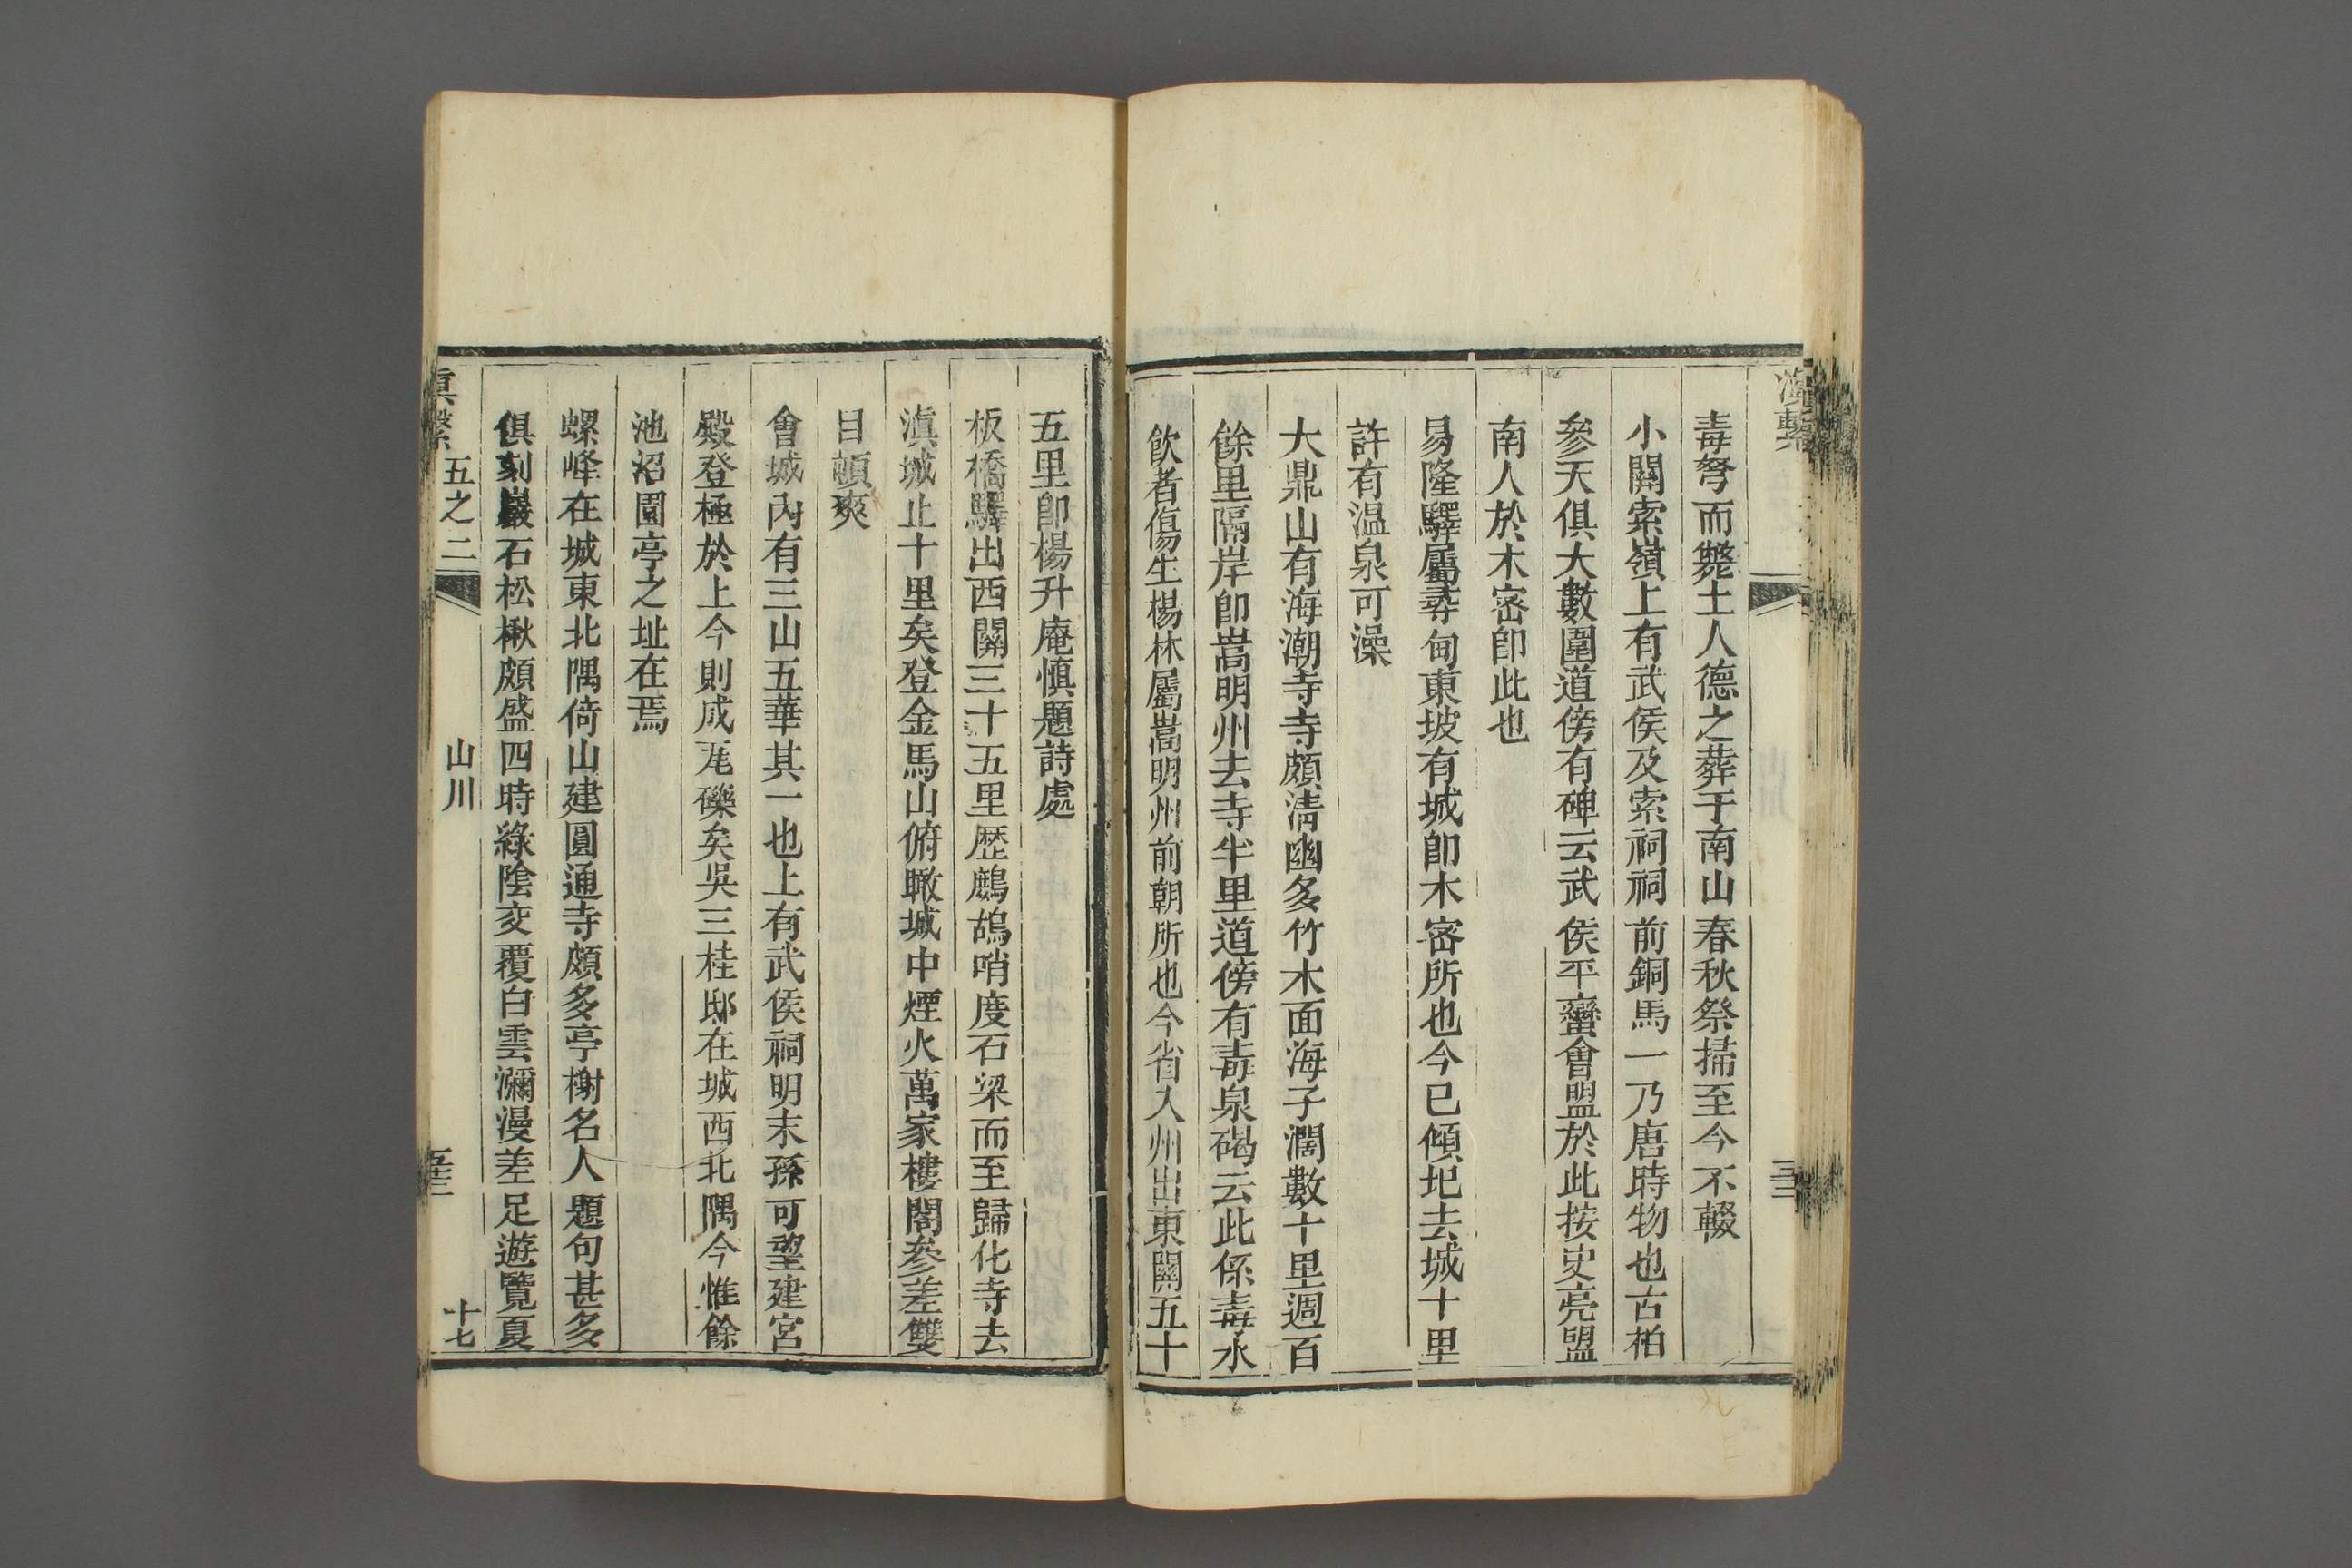 滇繫
毒弩而斃土人德之葬于南山春秋祭掃至今不輟
小關索嶺上有武侯及索祠祠前銅馬一乃唐時物也古柏
參天俱大數圍道傍有碑云武侯平蠻會盟於此按史亮盟
南人於木密卽此也
易隆驛屬尋甸東坡有城卽木密所也今已傾圯去城十里
許有溫泉可澡
大鼎山有海潮寺寺頗淸幽多竹木面海子濶數十里週百
餘里隔岸卽嵩明州去寺半里道傍有毒泉碣云此係毒水
飲者傷生楊林屬嵩明州前朝所也今省入州出東關五十
五里卽楊升庵愼題詩處
板橋驛出西關三十五里歷鷓鴣哨度石梁而至歸化寺去
滇城止十里矣登金馬山俯瞰城中煙火萬家樓閣參差雙
目頓爽
會城內有三山五華其一也上有武侯祠明末孫可望建宮
殿登極於上今則成瓦礫矣吳三桂邸在城西北隅今惟餘
池沼園亭之址在焉
螺峰在城東北隅倚山建圓通寺頗多亭榭名人題句甚多
俱刻巖石松楸頗盛四時綠陰交覆白雲瀰漫差足遊覽夏
滇繫 五之二 山川 十七